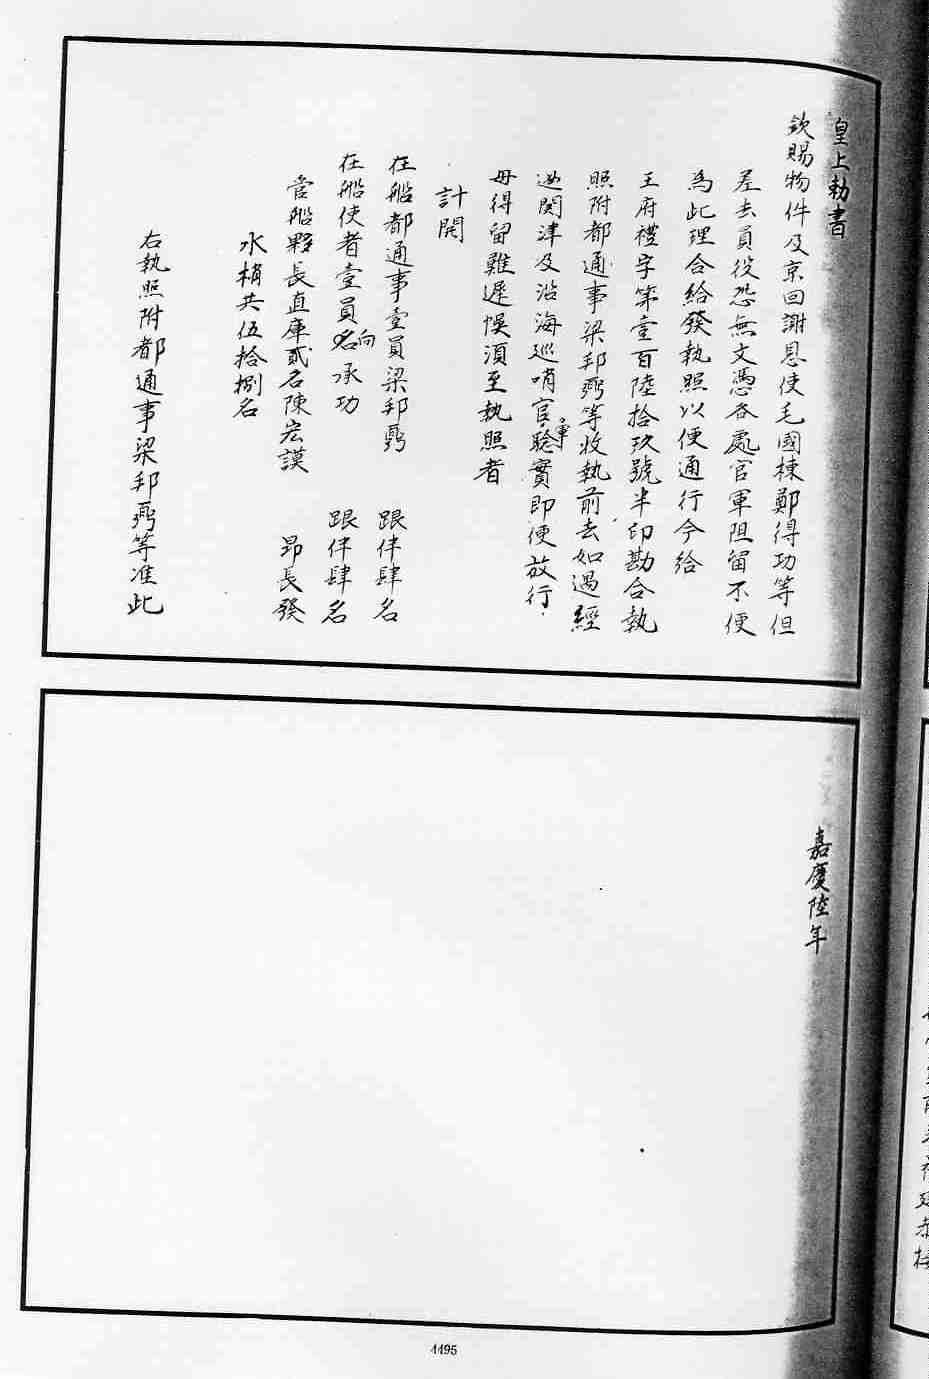 皇上勅書
欽賜物件及京回謝恩使毛國棟鄭得功等但
差去員役恐無文憑各處官軍阻留不便
為此理合給發執照以便通行今給
王府禮字第壹百陸拾玖號半印勘合執
照附都通事梁邦弼等收執前去如遇經
過関津及沿海巡哨官軍驗實即便放行
毋得留難遲悞須至執照者
計開
在船都通事壹員梁邦弼 跟伴肆名
在船使者壹員名向承功 跟伴肆名
管船夥長直庫貳名陳宏謨 昂長發
水梢共伍拾捌名
右執照附都通事梁邦弼等准此
嘉慶陸年
4495